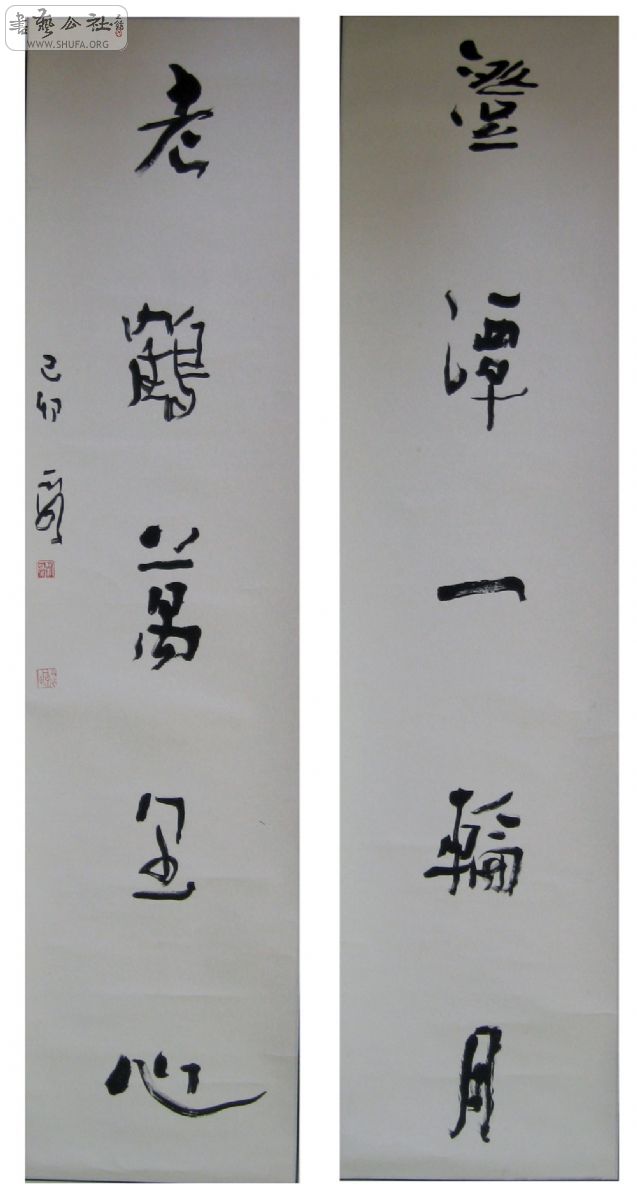 書藝公社
WWW.SHUFA.ORG
澄潭一輪月
老鶴萬里心
己卯